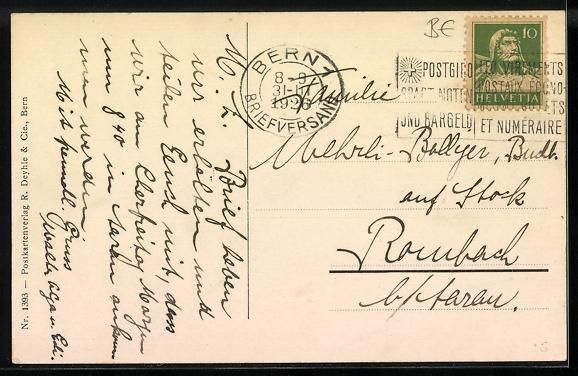 BE
10
HELVETIA
BERN 1
8-9
1926
BRIEFVERSAND
POSTGIRO LES VIREMENTS
POSTAUX ÉCONO-
SPART NOTEN
UND BARGELD ET NUMÉRAIRE
Familie
Wehrli-Bolliger, Buchb.
auf Stock
Rombach
b/Aarau.
M. L. Brief haben
wir erhalten und
teilen Euch mit, dass
wir am Charfreitag Morgen
um 8 40 in Aarau ankom
men werden.
Mit freundl. Gruss
Nr. 1393 — Postkartenverlag R. Deyhle & Cie., Bern